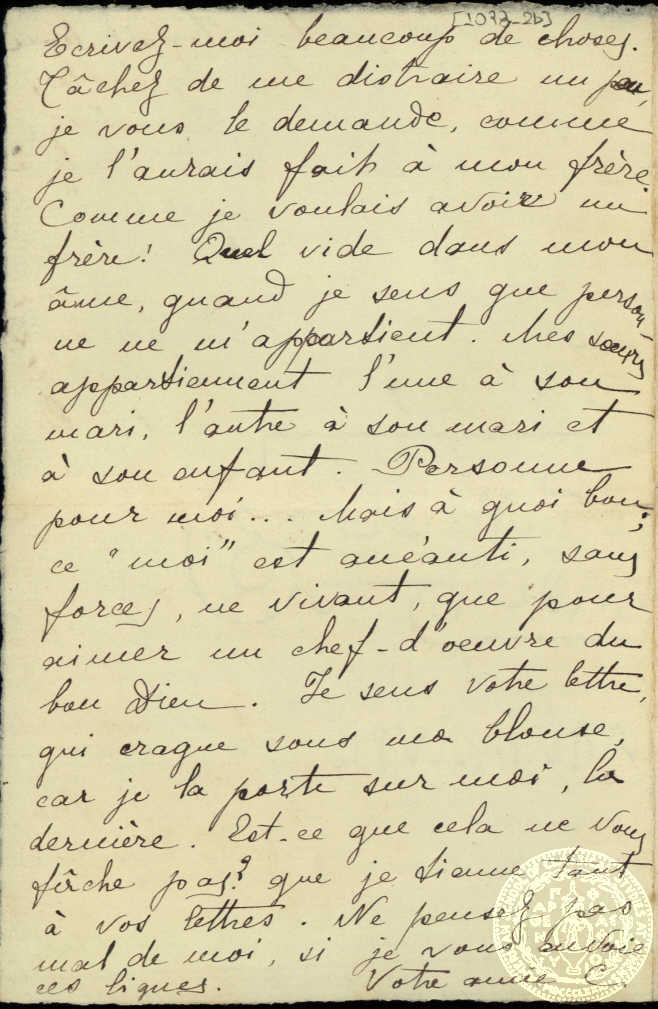 [1077-2b]
Ecrivez-moi beaucoup de choses.
Tâchez de me distraire un peu,
je vous le demande, comme
je l'aurais fait à mon frère.
Comme je voulais avoir un
frère! Quel vide dans mon
âme, quand je sens que person-
ne ne m'appartient. Mes soeurs
appartiennent l'une à son
mari, l'autre à son mari et
à son enfant. Personne
pour moi... Mais à quoi bon;
ce "moi" est anéanti, sans
forces, ne vivant, que pour
aimer un chef-d'oeuvre du
bon Dieu. Je sens votre lettre,
qui craque sous ma blouse,
car je la porte sur moi, la
dernière. Est-ce que cela ne vous
fâche pas? que je tienne tant
à vos lettres. Ne pensez pas
mal de moi, si je vous envoie
ces lignes. Votre amie C.